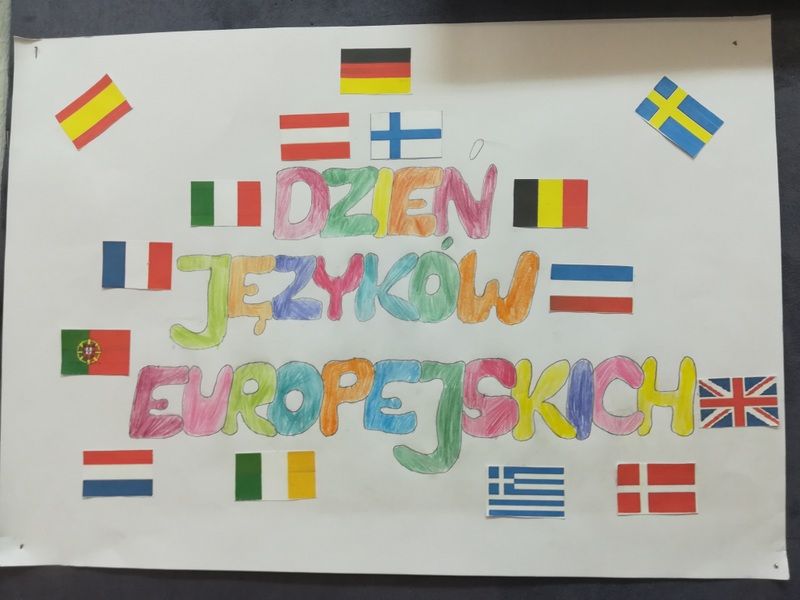 DZIEŃ
JĘZYKÓW
EUROPEJSKICH